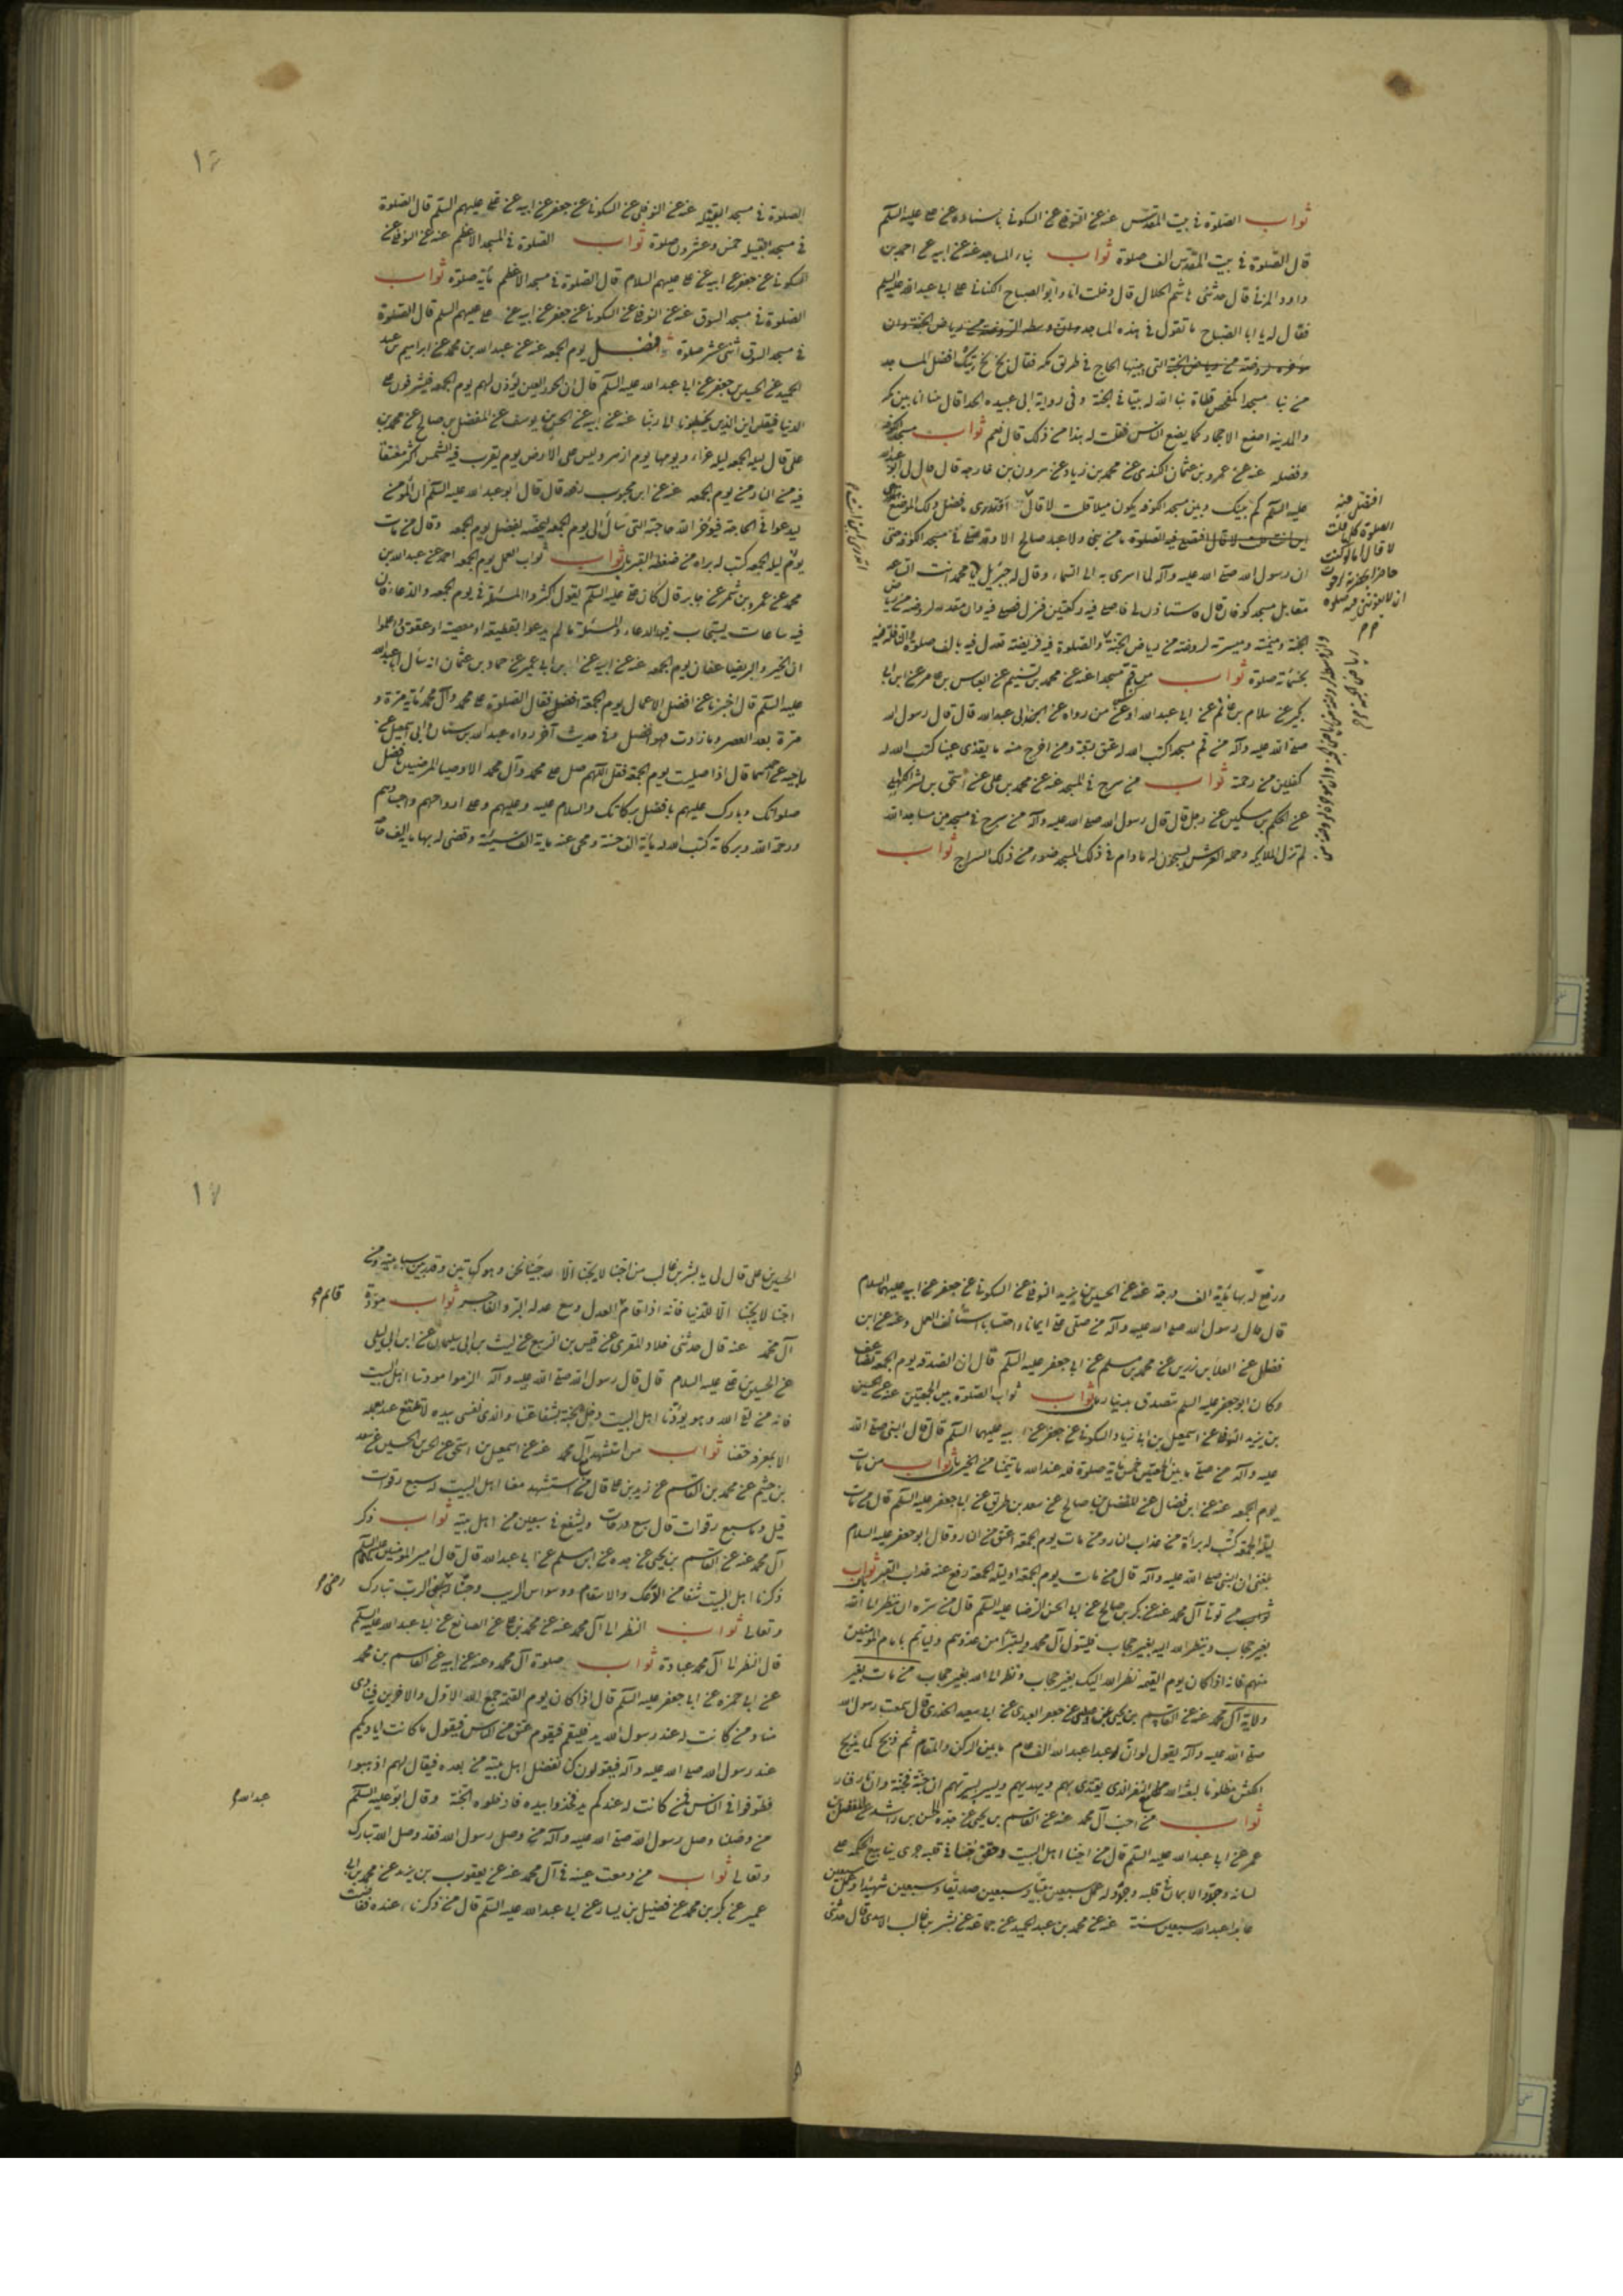 ثواب الصلوة في بيت المقدس عنه عن النوفلي عن السكوني باسناده عن علي عليه السلم
قال الصلوة في بيت المقدس الف صلوة ثواب بناء المساجد عنه عن ابيه عن احمد بن
داود المزني قال حدثني هاشم الحلال قال دخلت انا وابو الصباح الكناني على ابي عبد الله عليه السلم
فقال له يا ابا الصباح ما تقول في هذه المساجد
التي بينها الحاج في طريق مكه فقال بخ بخ تيك افضل المساجد
من بنا مسجدا كمفحص قطاة بنا الله له بيتا في الجنة وفي رواية ابي عبيده الحذا قال بينا انا بين مكه
والمدينه اضع الاحجار كما يضع الناس فقلت له هذا من ذلك قال نعم ثواب مسجد الكوفه
وفضله عنه عن عمرو بن عثمان الكندي عن محمد بن زياد عن هرون بن خارجه قال قال لي ابو عبد الله
عليه السلم كم بينك وبين مسجد الكوفه يكون ميلا قلت لا قال افتدري ما فضل ذلك الموضع
ما من نبي ولا عبد صالح الا وقد صلى في مسجد الكوفه حتى
ان رسول الله صلى الله عليه وآله لما اسري به الى السماء وقال له جبرئيل يا محمد انت الساعة
مقابل مسجد كوفان قال فاستاذن لي فاصلي فيه ركعتين فنزل فصلى فيه وان مقدمه لروضة من رياض
الجنة وميمنته وميسرته لروضة من رياض الجنة والصلوة فيه فريضة تعدل فيه بالف صلوة والنافلة فيه
بخمسمائة صلوة ثواب من قم مسجدا عنه عن محمد بن تسنيم عن العباس بن عامر عن ابن
بكير عن سلام بن غانم عن ابي عبد الله او عمن رواه عن ابي عبد الله قال قال رسول الله
صلى الله عليه وآله من قم مسجدا كتب الله له عتق رقبة ومن اخرج منه ما يقذي عينا كتب الله له
كفلين من رحمته ثواب من سرج في المسجد عنه عن محمد بن علي عن اسحق بن يشكر الكاهلي
عن الحكم بن مسكين عن رجل قال قال رسول الله صلى الله عليه وآله من سرج في مسجد من مساجد الله
لم تزل الملائكه وحملة العرش يسبحون له ما دام في ذلك المسجد ضوء من ذلك السراج ثواب
افتصلي فيه
الصلوة كلها قلت
لا قال اما لو كنت
حاضرا بحضرته لرجوت
ان لا تفوتني فيه صلوه
١٦
الصلوة في مسجد القبيله عنه عن النوفلي عن السكوني عن جعفر عن ابيه عن علي عليهم السلم قال الصلوة
في مسجد القبيله خمس وعشرون صلوة ثواب الصلوة في المسجد الاعظم عنه عن النوفلي عن
السكوني عن جعفر عن ابيه عن علي عليهم السلام قال الصلوة في مسجد الاعظم مائة صلوة ثواب
الصلوة في مسجد السوق عنه عن النوفلي عن السكوني عن جعفر عن ابيه عن علي عليهم السلم قال الصلوة
في مسجد السوق اثنى عشر صلوة فضل يوم الجمعه عنه عن عبد الله بن محمد عن ابراهيم بن عبد
الحميد عن الحسين بن جعفر عن ابي عبد الله عليه السلم قال ان الحور العين يؤذن لهم يوم الجمعه فيشرفون على
الدنيا فيقلن اين الذين يخطبونا الى ربنا عنه عن ابيه عن الحسن بن يوسف عن المفضل بن صالح عن محمد بن
علي قال ليلة الجمعه ليلة غراء ويومها يوم ازهر وليس على الارض يوم تغرب فيه الشمس اكثر معتقا
فيه من النار من يوم الجمعه عنه عن ابن محبوب رفعه قال قال ابو عبد الله عليه السلم ان المؤمن
ليدعوا في الحاجة فيؤخر الله حاجته التي سأل الى يوم الجمعه ليخصه بفضل يوم الجمعه وقال من مات
يوم ليلة الجمعه كتب له براة من ضغطة القبر ثواب ثواب العمل يوم الجمعه احمد عن عبد الله بن
محمد عن عمرو بن شمر عن جابر قال كان علي عليه السلم يقول اكثروا المسئلة في يوم الجمعه والدعاء فان
فيه ساعات يستجاب فيها الدعاء والمسئلة ما لم يدعوا بقطيعة او معصية او عقوق واعلموا
ان الخير والبر يضاعفان يوم الجمعه عنه عن ابيه عن ابن ابي عمير عن حماد بن عثمان انه سأل ابا عبد الله
عليه السلم قال اخبرنا عن افضل الاعمال يوم الجمعة افضل فقال الصلوة على محمد وآل محمد مائة مرة و
مرة بعد العصر وما زادت فهو افضل وفي حديث آخر رواه عبد الله بن سنان وابي اسمعيل عن
ناجيه عن احدهما قال اذا صليت يوم الجمعة فقل اللهم صل على محمد وآل محمد الاوصيا المرضيين بافضل
صلواتك وبارك عليهم بافضل بركاتك والسلام عليه وعليهم وعلى ارواحهم واجسادهم
ورحمة الله وبركاته كتب الله له مائة الف حسنة ومحى عنه مائة الف سيئة وقضى له بها مائة الف حاجة
ورفع له بها مائة الف درجة عنه عن الحسين بن يزيد النوفلي عن السكوني عن جعفر عن ابيه عليهما السلام
قال قال رسول الله صلى الله عليه وآله من صلى ايمانا واحتسابا استأنف العمل وعنه عن ابن
فضال عن العلا بن رزين عن محمد بن مسلم عن ابي جعفر عليه السلم قال ان الصدقه يوم الجمعه تضاعف
وكان ابو جعفر عليه السلم يتصدق بدينار ثواب ثواب الصلوة بين الجمعتين عنه عن الحسين
بن يزيد النوفلي عن اسمعيل بن ابي زياد السكوني عن جعفر عن ابيه عليهما السلم قال قال النبي صلى الله
عليه وآله من صلى ما بين الجمعتين خمسمائة صلوة فله عند الله ما يتمنا من الخير ثواب من مات
يوم الجمعه عنه عن ابن فضال عن المفضل بن صالح عن سعد بن طريف عن ابي جعفر عليه السلم قال من مات
ليلة الجمعة كتب له براءة من عذاب النار ومن مات يوم الجمعة اعتق من النار وقال ابو جعفر عليه السلام
بلغني ان النبي صلى الله عليه وآله قال من مات يوم الجمعة او ليلة الجمعة رفع عنه عذاب القبر ثواب
من تولى آل محمد عنه عن بكر بن صالح عن ابي الحسن الرضا عليه السلم قال من سره ان ينظر الى الله
بغير حجاب وينظر الله اليه بغير حجاب فليتول آل محمد وليتبرأ من عدوهم وليأتم بامام المؤمنين
منهم فانه اذا كان يوم القيمه نظر الله اليه بغير حجاب ونظر الى الله بغير حجاب من مات بغير
ولاية آل محمد عنه عن القاسم بن يحيى عن عبيس عن جيفر العبدي عن ابي سعيد الخدري قال سمعت رسول الله
صلى الله عليه وآله يقول لو ان عبدا عبد الله الف عام ما بين الركن والمقام ثم ذبح كما يذبح
الكبش مظلوما لبعثه الله مع النفر الذي يقتدي بهم ويهديهم ويسير بسيرتهم ان جنة فجنة وان نار فنار
ثواب من احب آل محمد عنه عن القاسم بن يحيى عن جده الحسن بن راشد عن المفضل بن
عمر عن ابي عبد الله عليه السلم قال من احبنا اهل البيت وحقق حبنا في قلبه جرى ينابيع الحكمه على
لسانه وجدد الايمان في قلبه وجدد له عمل سبعين نبيا وسبعين صديقا وسبعين شهيدا وعمل سبعين
عابدا عبد الله سبعين سنة عنه عن محمد بن عبد الحميد عن جماعة عن بشر بن غالب الاسدي قال حدثني
١٧
الحسين بن علي قال لي يا بشر بن غالب من احبنا لا يحبنا الا لله جئنا نحن وهو كهاتين وقدر بين سبابتيه ومن
احبنا لا يحبنا الا للدنيا فانه اذا قام العدل وسع عدله البر والفاجر ثواب مودة
قائم
آل محمد عنه قال حدثني خلاد المقري عن قيس بن الربيع عن ليث بن ابي سليمان عن ابن ابي ليلى
عن الحسين بن علي عليه السلام قال قال رسول الله صلى الله عليه وآله الزموا مودتنا اهل البيت
فانه من لقى الله وهو يودنا اهل البيت دخل الجنة بشفاعتنا والذي نفسي بيده لا ينتفع عبد بعمله
الا بمعرفة حقنا ثواب من استشهد آل محمد عنه عن اسمعيل بن اسحق عن الحسن بن الحسين عن سعيد
بن خيثم عن محمد بن القاسم عن زيد بن علي قال من استشهد معنا اهل البيت له سبع رقوات
قيل وما سبع رقوات قال سبع درجات ويشفع في سبعين من اهل بيته ثواب ذكر
آل محمد عنه عن القاسم بن يحيى عن جده عن ابن مسلم عن ابي عبد الله قال قال امير المؤمنين عليه السلم
ذكرنا اهل البيت شفا من الوعك والاسقام ووسواس الريب وحبنا رضى الرب تبارك
وتعالى ثواب النظر الى آل محمد عنه عن محمد بن علي عن الصانع عن ابي عبد الله عليه السلم
قال النظر الى آل محمد عبادة ثواب صلوة آل محمد وعنه عن ابيه عن القاسم بن محمد
عن ابي حمزه عن ابي جعفر عليه السلم قال اذا كان يوم القيمة جمع الله الاول والاخرين فينادي
مناد من كانت له عند رسول الله يد فليقم فيقوم عنق من الناس فيقول ما كانت اياديكم
عند رسول الله صلى الله عليه وآله فيقولون كن نفضل اهل بيته من بعده فيقال لهم اذهبوا
فطوفوا في الناس فمن كانت له عندكم يد فخذوا بيده فادخلوه الجنة وقال ابو عليه السلم
عبد الله
من وصلنا وصل رسول الله صلى الله عليه وآله من وصل رسول الله فقد وصل الله تبارك
وتعالى ثواب من دمعت عينه في آل محمد عنه عن يعقوب بن يزيد عن محمد بن ابي
عمير عن بكر بن محمد عن فضيل بن يسار عن ابي عبد الله عليه السلم قال من ذكرنا عنده ففاضت